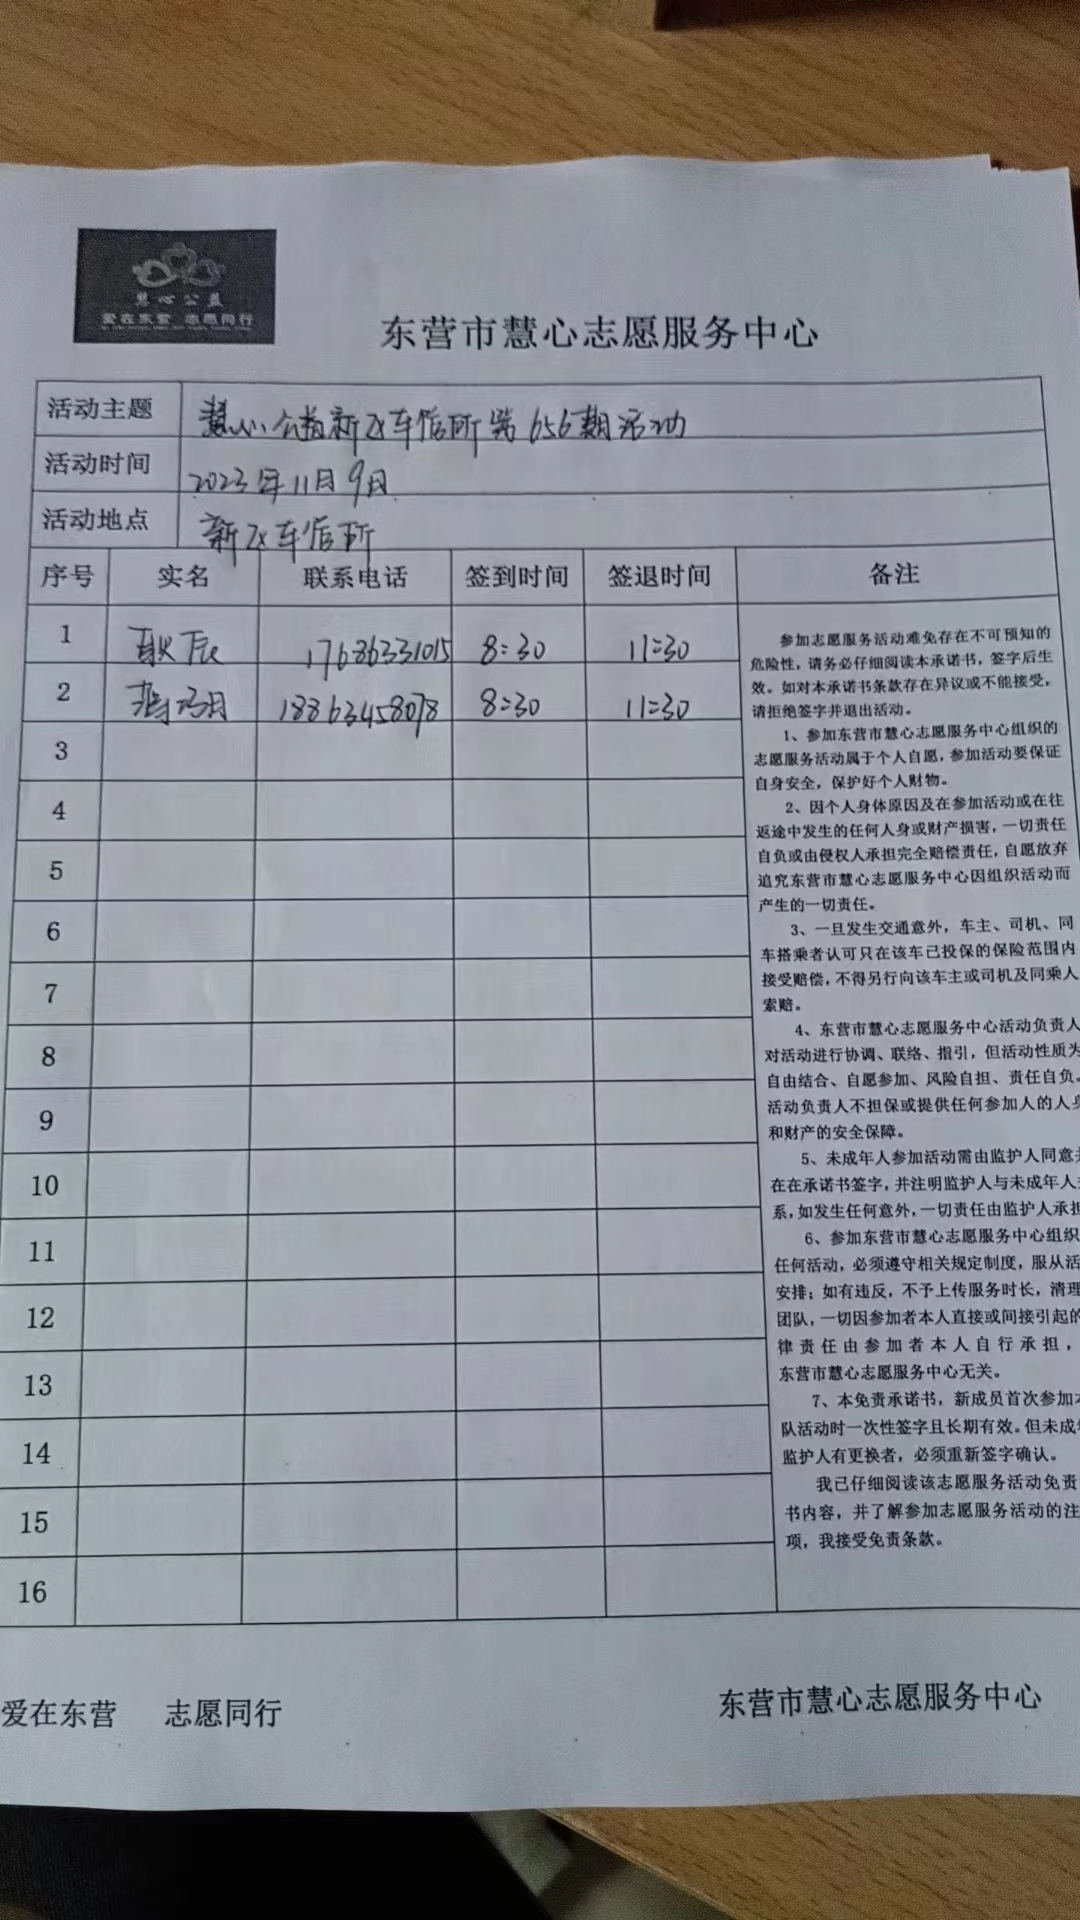 慧心公益
爱在东营 志愿同行
东营市慧心志愿服务中心
活动主题 慧心公益新区车管所第656期活动
活动时间 2023年11月9日
活动地点 新区车管所
序号 实名 联系电话 签到时间 签退时间 备注
1 耿辰 17686331015 8:30 11:30
2 18863458078 8:30 11:30
3
4
5
6
7
8
9
10
11
12
13
14
15
16
参加志愿服务活动难免存在不可预知的
危险性，请务必仔细阅读本承诺书，签字后生
效。如对本承诺书条款存在异议或不能接受，
请拒绝签字并退出活动。
1、参加东营市慧心志愿服务中心组织的
志愿服务活动属于个人自愿，参加活动要保证
自身安全，保护好个人财物。
2、因个人身体原因及在参加活动或在往
返途中发生的任何人身或财产损害，一切责任
自负或由侵权人承担完全赔偿责任，自愿放弃
追究东营市慧心志愿服务中心因组织活动而
产生的一切责任。
3、一旦发生交通意外，车主、司机、同
车搭乘者认可只在该车已投保的保险范围内
接受赔偿，不得另行向该车主或司机及同乘人
索赔。
4、东营市慧心志愿服务中心活动负责人
对活动进行协调、联络、指引，但活动性质为
自由结合、自愿参加、风险自担、责任自负。
活动负责人不担保或提供任何参加人的人身
和财产的安全保障。
5、未成年人参加活动需由监护人同意
在在承诺书签字，并注明监护人与未成年人
系，如发生任何意外，一切责任由监护人承担
6、参加东营市慧心志愿服务中心组织
任何活动，必须遵守相关规定制度，服从活
安排；如有违反，不予上传服务时长，清理
团队，一切因参加者本人直接或间接引起的
律责任由参加者本人自行承担，
东营市慧心志愿服务中心无关。
7、本免责承诺书，新成员首次参加本
队活动时一次性签字且长期有效。但未成年
监护人有更换者，必须重新签字确认。
我已仔细阅读该志愿服务活动免责
书内容，并了解参加志愿服务活动的注
项，我接受免责条款。
爱在东营 志愿同行
东营市慧心志愿服务中心